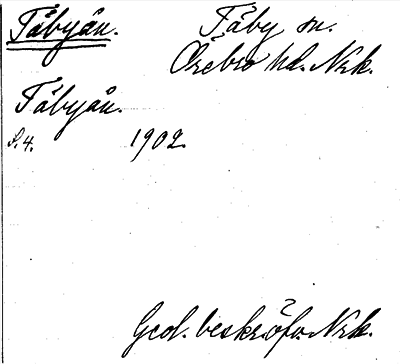 Täbyån. Täby sn.
Örebro hd. Nrk.
Täbyån.
S. 4. 1902.
Geol. beskr. öfv. Nrk.